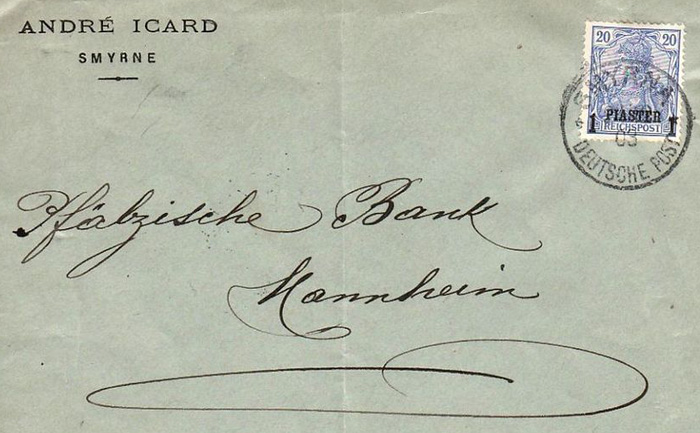 ANDRÉ ICARD
SMYRNE
20 20
1 PIASTER 1
REICHSPOST
SMYRNA
03
DEUTSCHE POST
Pfälzische Bank
Mannheim